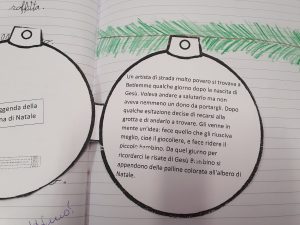 soffitta.
ggenda della
na di Natale
Un artista di strada molto povero si trovava a
Betlemme qualche giorno dopo la nascita di
Gesù. Voleva andare a salutarlo ma non
aveva nemmeno un dono da portargli. Dopo
qualche esitazione decise di recarsi alla
grotta e di andarlo a trovare. Gli venne in
mente un'idea: fece quello che gli riusciva
meglio, cioè il giocoliere, e fece ridere il
piccolo bambino. Da quel giorno per
ricordarci le risate di Gesù Bambino si
appendono delle palline colorate all'albero di
Natale.